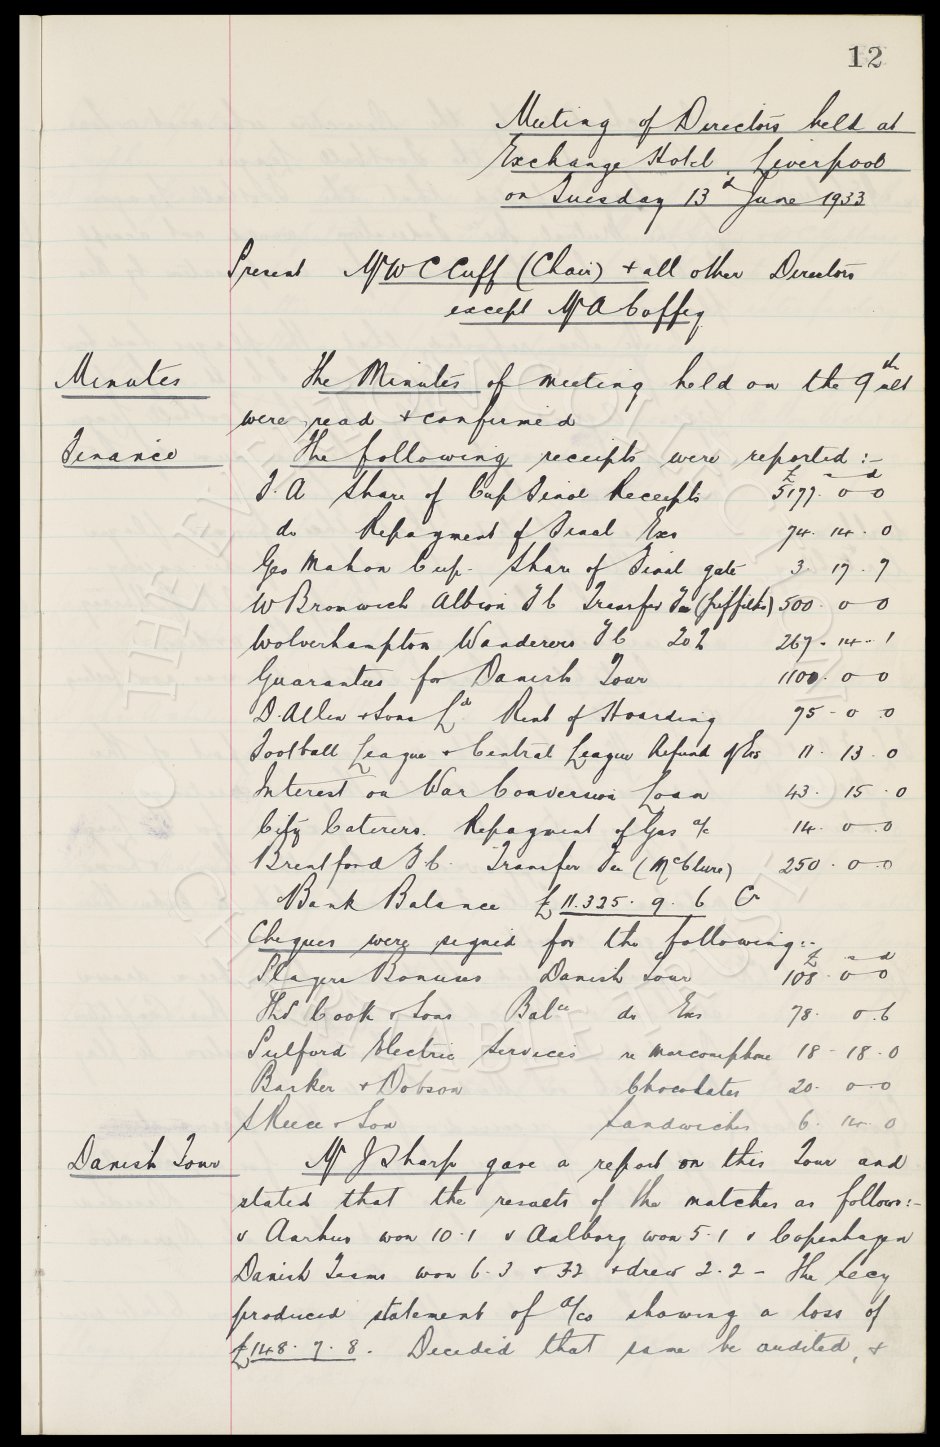 12
Meeting of Directors held at
Exchange Hotel, Liverpool
on Tuesday 13th June 1933
Present Mr W C Cuff (Chair) + all other Directors
except Mr A Coffey
Minutes The Minutes of meeting held on the 9th ult
were read + confirmed
Finance The following receipts were reported :-
£ s d
F.A Share of Cup Final Receipts 5177. 0 0
do Repayment of Final Exes 74. 14. 0
Geo Mahon Cup. Share of Final gate 3. 17. 7
W Bromwich Albion F C Transfer Fee (Griffiths) 500. 0 0
Wolverhampton Wanderers F C 20% 267. 14. 1
Guarantees for Danish Tour 1100. 0 0
D. Allen + Sons Ld Rent of Hoarding 75. 0 0
Football League + Central League Refund of Exs 11. 13. 0
Interest on War Conversion Loan 43. 15. 0
City Caterers. Repayment of Gas a/c 14. 0 0
Brentford F C. Transfer Fee (McClure) 250. 0 0
Bank Balance £11.325. 9. 6 Cr
Cheques were signed for the following :-
£ s d
Players Bonuses Danish Tour 108. 0 0
Thos Cook + Sons Balce do Exs 78. 0. 6
Pulford Electric Services re Marconiphone 18. 18. 0
Barker + Dobson Chocolates 20. 0 0
S Reece + Son Sandwiches 6. 14. 0
Danish Tour Mr J Sharp gave a report on this Tour and
stated that the results of the matches as follows :-
v Aarhus won 10.1 v Aalborg won 5.1 v Copenhagen
Danish Teams won 6.3 + 3.2 + drew 2.2 - The Secy
produced statement of a/cs showing a loss of
£148. 7. 8. Decided that same be audited, +
THE EVERTON